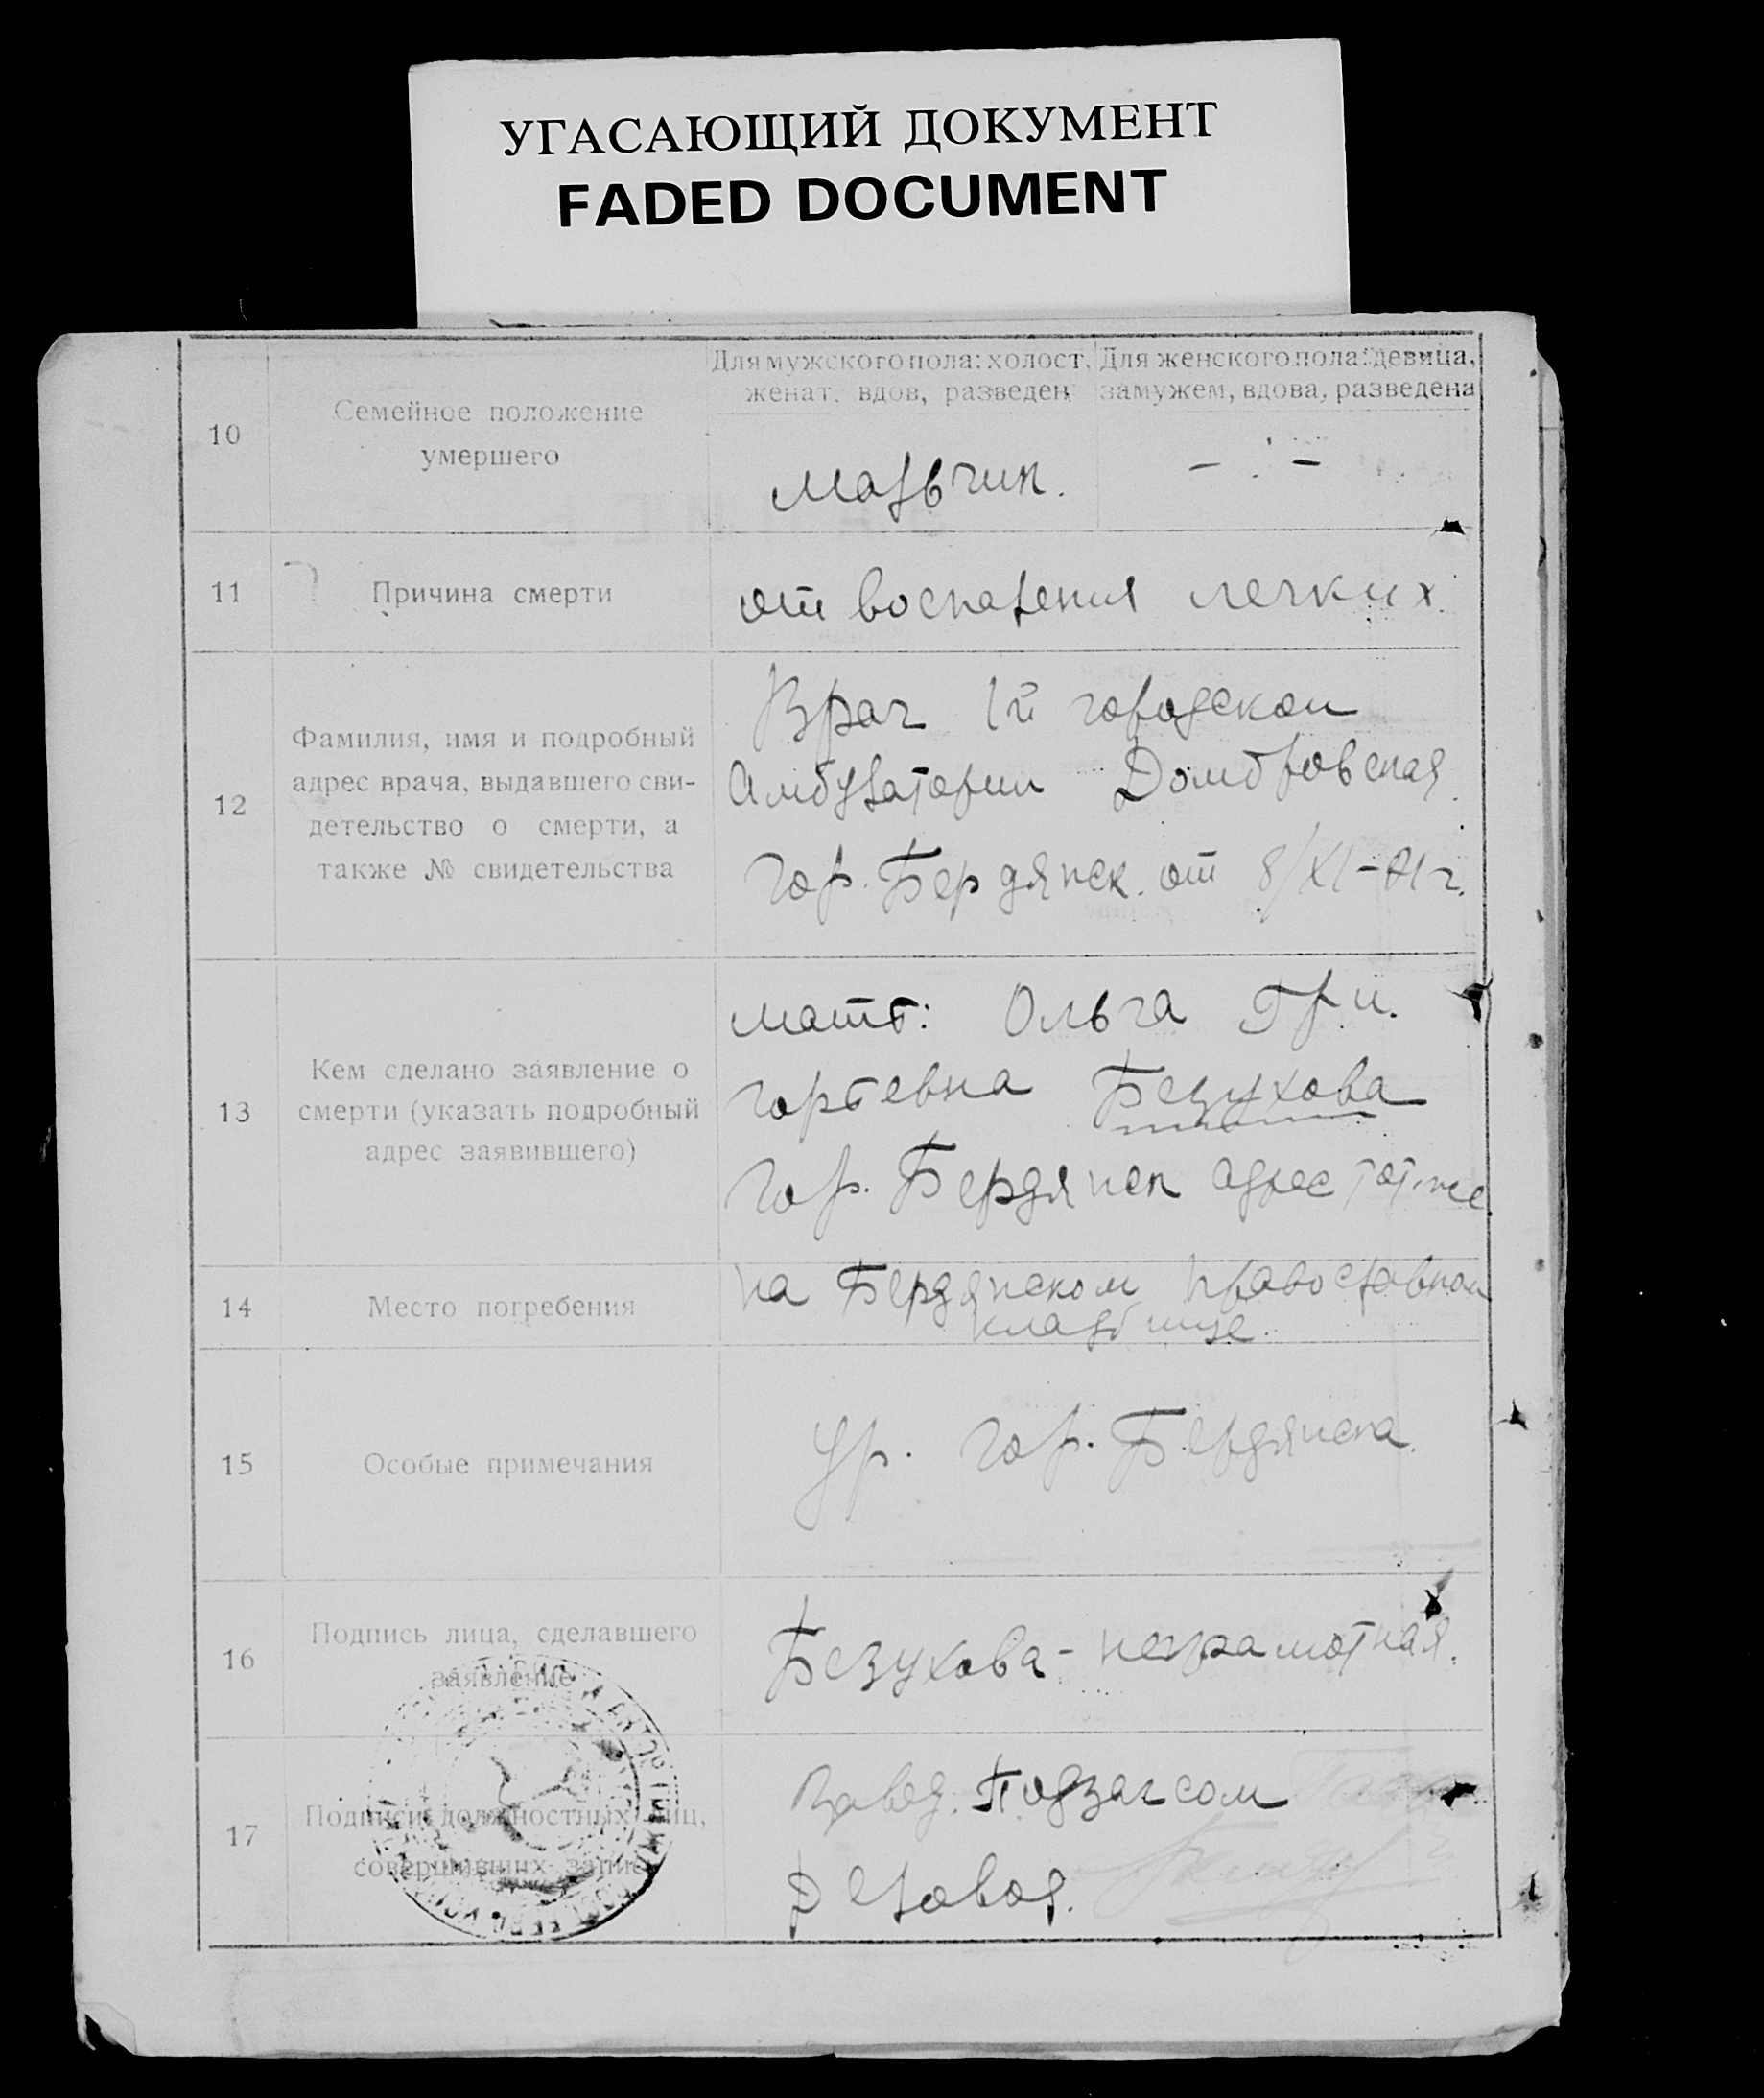 УГАСАЮЩИЙ ДОКУМЕНТ
FADED DOCUMENT
10
Семейное положение
умершего
Для мужского пола: холост,
женат, вдов, разведен
Для женского пола: девица,
замужем, вдова, разведена
мальчик.
11
Причина смерти
от воспаления легких.
12
Фамилия, имя и подробный
адрес врача, выдавшего сви-
детельство о смерти, а
также № свидетельства
Врач 1й городской
Амбулатории Домбровская.
гор. Бердянск. от 8/XI-21 г.
13
Кем сделано заявление о
смерти (указать подробный
адрес заявившего)
мать: Ольга Гри.
горьевна Безухова
гор. Бердянск адрес тот-же.
14
Место погребения
на Бердянском православном
кладбище.
15
Особые примечания
Ур. гор. Бердянска.
16
Подпись лица, сделавшего
заявление
Безухова - неграмотная.
17
Подписи должностных лиц,
совершивших запись
Завед. Подзагсом
Деловод.